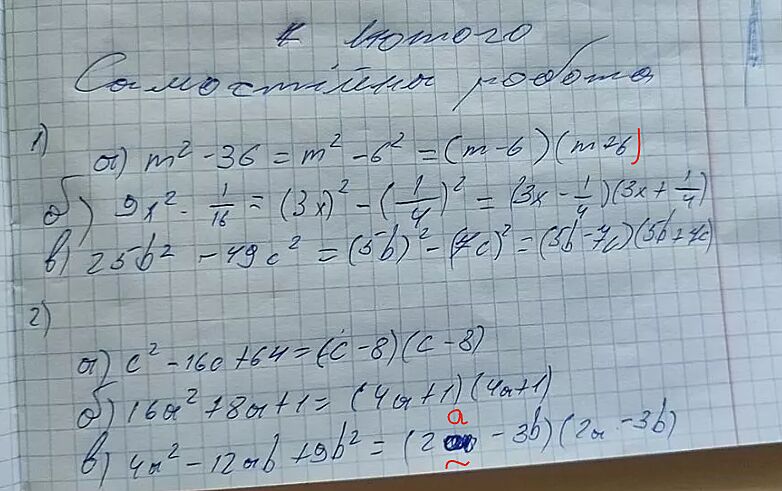 лютого
Самостійна робота
1)
а) m² - 36 = m² - 6² = (m - 6)(m + 6)
б) 9x² - 1/16 = (3x)² - (1/4)² = (3x - 1/4)(3x + 1/4)
в) 25b² - 49c² = (5b)² - (7c)² = (5b - 7c)(5b + 7c)
2)
а) c² - 16c + 64 = (c - 8)(c - 8)
б) 16a² + 8a + 1 = (4a + 1)(4a + 1)
a
в) 4a² - 12ab + 9b² = (2a - 3b)(2a - 3b)